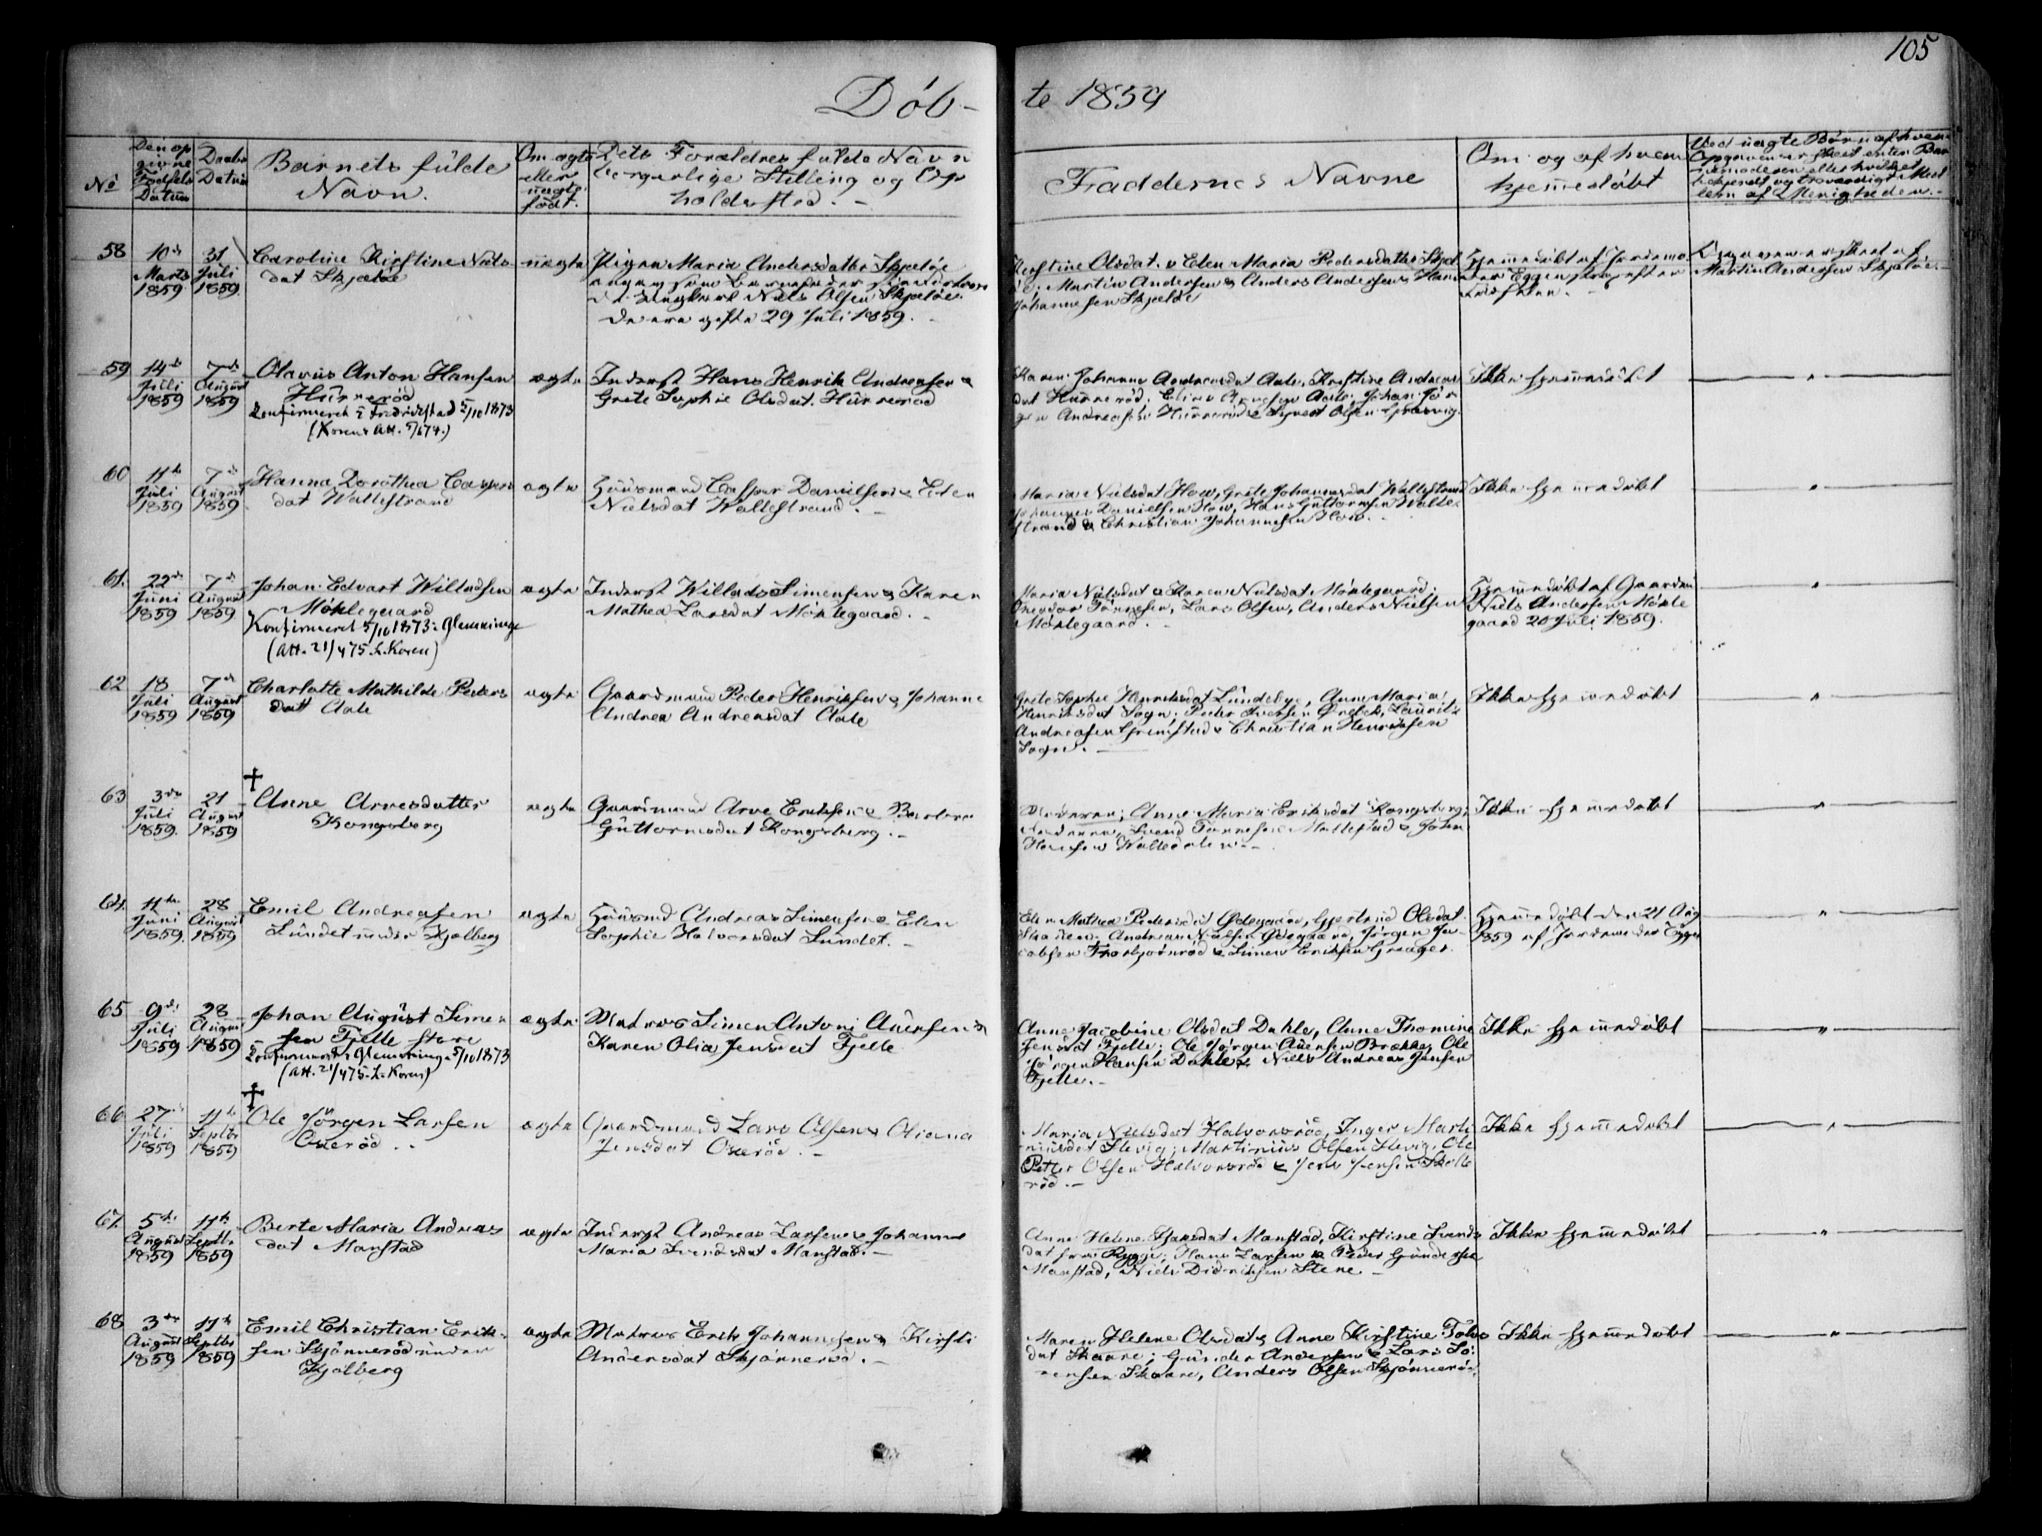 105
Döb-
te 1859
No
Den op
givne
Födsels
Datum
Daabs
Datum
Barnets fulde
Navn.
Om ægte
eller
uægte
födt.
Dets Forældres fulde Navn
borgerlige Stilling og Op
holdssted. -
Faddernes Navne
Om og af hvem
hjemmedöbt
Ved uægte Börn af hvem
Opgaven er skeet enten Bar
nemoderen eller hvilket
bekjendt og troværdigt Med
lem af Menigheden. -
58
10de
Marts
1859
31
Juli
1859
Caroline Kirstine Niels
dat Skjælöe
uægte
Pigen Maria Andersdatter Skjelöe
angav som Barnefader
Ungkarl Niels Olsen Skjelöe.
De ere gifte 29 Juli 1859. -
Kirstine Olsdat. & Elen Maria Pedersdatter Skjel
öe; Martin Andersen & Anders Andersen, Hans
Johannesen Skjelöe
Hjemmedöbt af Jordemo
der Eggen strax efter
Födselen. -
Opgaven er skeet af
Martin Andersen Skjelöe. -
59
14de
Juli
1859
7de
August
1859
Olavus Anton Hansen
Hunneröd
Konfirmeret i Fredrikstad 5/10 1873
(Korens Att. 5/6 74.)
ægte
Inderst Hans Henrik Andreasen &
Grete Sophie Olsdat. Hunneröd
Karen Johanne Andreasdat Aale, Kirstine Andreas
dat Hunneröd; Elias Arnesen Aale, Johan Jör
gen Andreasen Hunneröd & Syvert Olsen Gressvig.
Ikke hjemmedöbt
"
60
11te
Juli
1859
7de
August
1859
Hanna Dorothea Caspers
dat Wallestrand
ægte
Huusmand Casper Danielsen & Elen
Nielsdat Wallestrand. -
Maria Nielsdat How, Grete Johannesdat Wallestrand
Johannes Danielsen How, Hans Guttormsen Walle
strand & Christian Johannesen How. -
Ikke hjemmedöbt
"
61.
22de
Juni
1859
7de
August
1859
Johan Edvart Willadsen
Möklegaard
Konfirmeret 5/10 1873 i Glemminge
(Att. 21/4 75. L. Koren)
ægte
Inderst Willads Simensen & Karen
Mathea Larsdat Möklegaard. -
Maria Nielsdat & Karen Nielsdat Möklegaard;
Tönnesen, Lars Olsen, Anders Nielsen
Möklegaard. -
Hjemmedöbt af Gaardm
Niels Andersen Mökle
gaard 20 Juli 1859.
"
62
18
Juli
1859
7de
August
1859
Charlotte Mathilde Peders
datt Aale
ægte
Gaardmand Peder Henriksen & Johanne
Andrea Andreasdat Aale
Grete Sophie Henriksdat Lundeby, Anne Maria
Henriksdat Sogn; Peder Iversen Örebek, Lauritz
Andreasen Grimstad & Christian Henriksen
Sogn. -
Ikke hjemmedöbt
"
63
3die
Juli
1859.
21
August
1859
†
Anne Arvesdatter
Kongsberg
ægte
Gaardmand Arve Eriksen & Barbra
Guttormsdat Kongsberg. -
Moderen; Anne Maria Eriksdat Kongsberg;
Faderen, Svend Tönnesen Mallestad & Johan
Hansen Walledalen. -
Ikke hjemmedöbt
"
64.
11te
Juni
1859.
28
August
1859
Emil Andreasen
Lundet under Kjölberg
ægte
Huusmd Andreas Simensen & Elen
Sophie Halvorsdat Lundet. -
Elen Mathea Pedersdat Ödegaard, Gjertrud Olsdat
Andreas Nielsen Ödegaard, Jörgen Ja-
cobsen Thorbjörnröd & Simen Eriksen Greager.
Hjemmedöbt den 21 Aug
1859 af Jordemoder Eggen
"
65
9de
Juli
1859
28
August
1859
Johan August Simen
sen Fjelle store
Konfirmeret i Glemminge 5/10 1873
(Att. 21/4 75. L. Koren)
ægte
Matros Simen Antoni Auensen &
Karen Olia Jensdat Fjelle
Anne Jacobine Olsdat Dahle, Anne Thomine
Jensdat Fjelle; Ole Jörgen Auensen Brække, Ole
Jörgen Hansen Dahle & Niels Andreas Jensen
Fjelle. -
Ikke hjemmedöbt
"
66
27de
Juli
1859
11te
Septbr
1859
†
Ole Jörgen Larsen
Oxeröd. -
ægte
Gaardmand Lars Olsen & Oliana
Jensdat Oxeröd. -
Maria Nielsdat Halvorsröd, Inger Marti
niusdat Slevig; Martinius Olsen Slevig, Ole
Petter Olsen Halvorsröd & Jens Jensen Skolle
röd. -
Ikke hjemmedöbt
"
67.
5te
August
1859
11te
Septbr
1859
Berte Maria Andreas
dat Manstad
ægte
Inderst Andreas Larsen & Johanne
Maria Svendsdat Manstad. -
Anne Helene Hansdat Manstad, Kirstine Svends
dat fra Rygge; Hans Larsen & Peder Gundersen
Manstad, Niels Didriksen Stene. -
Ikke hjemmedöbt
"
68
3die
August
1859
11te
Septbr
1859
Emil Christian Erik-
sen Skjönneröd under
Kjölberg
ægte
Matros Erik Johannesen & Kirsti
Andersdat Skjönneröd. -
Maren Helene Olsdat & Anne Kirstine Tolvs
dat Skaare; Gunder Andersen & Lars Sö-
rensen Skaare, Anders Olsen Skjönneröd.
Ikke hjemmedöbt
"